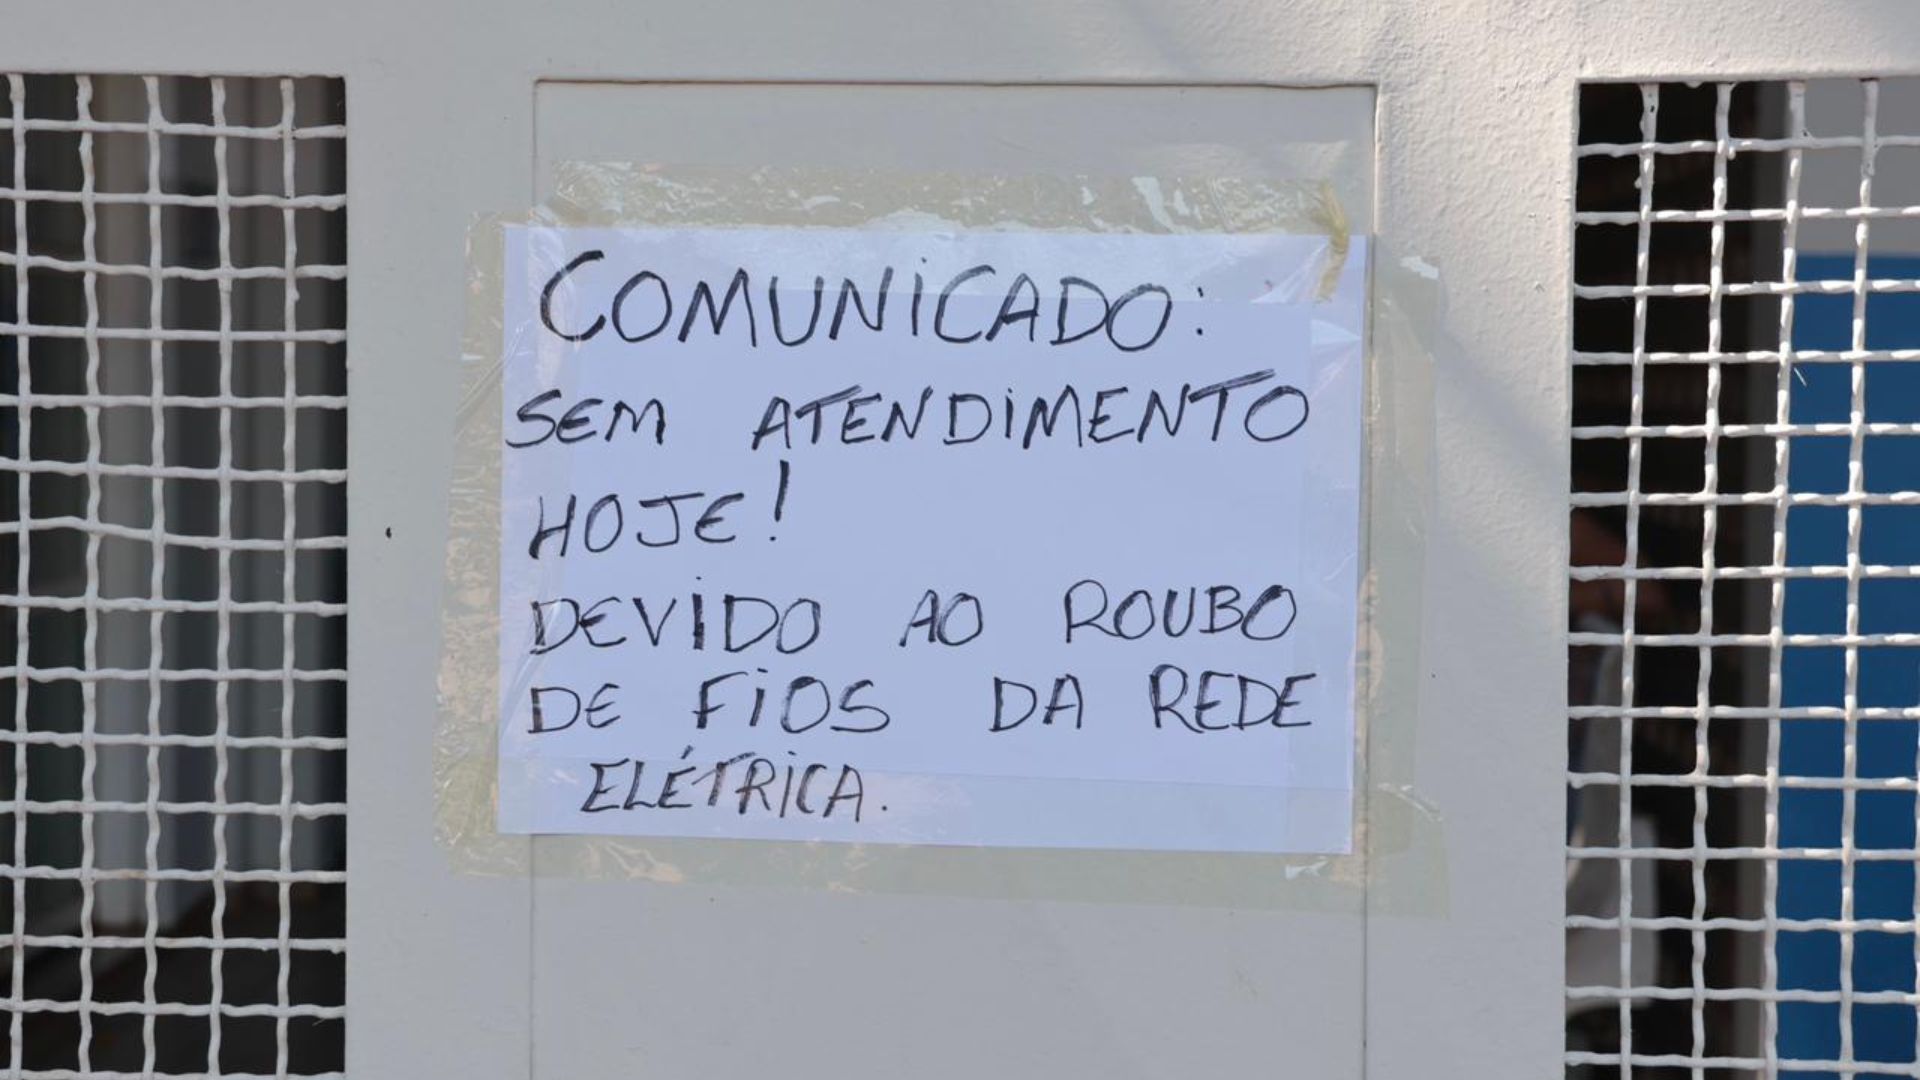 COMUNICADO:
SEM ATENDIMENTO
HOJE!
DEVIDO AO ROUBO
DE FIOS DA REDE
ELÉTRICA.